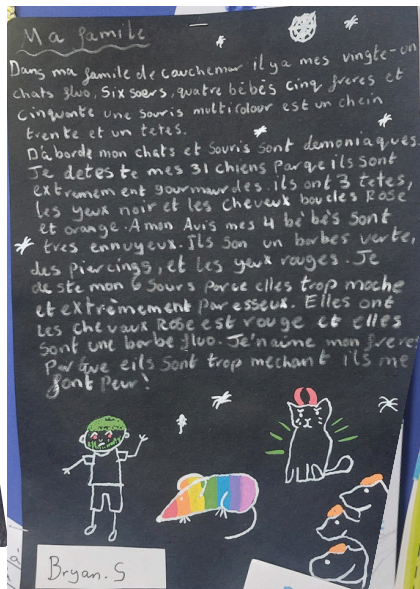 Ma famile
Dans ma famile de cauchemar il ya mes vingte-un
chats fluo, Six soers, quatre bébés cinq freres et
Cinquante une souris multicolour est un chein
trente et un tetes.
D'àborde mon chats et Souris Sont demoniaques.
Je deteste mes 31 chiens Parque ils sont
extremement gourmaurdes. ils ont 3 tetes,
les yeux noir et les Cheveux boucles Rose
et orange. A mon Avis mes 4 bébés Sont
tres ennuyeux. Ils Son un barbes verte,
des Piercings, et les yeux rouges. Je
deste mon 6 Sours Parce elles trop moche
et extrèmement Paresseux. Elles ont
Les chevaux Rose est rouge et elles
Sont une barbe fluo. Je'n'aime mon freres
Parque eils Sont trop mechant ils me
font Peur!
Bryan. S